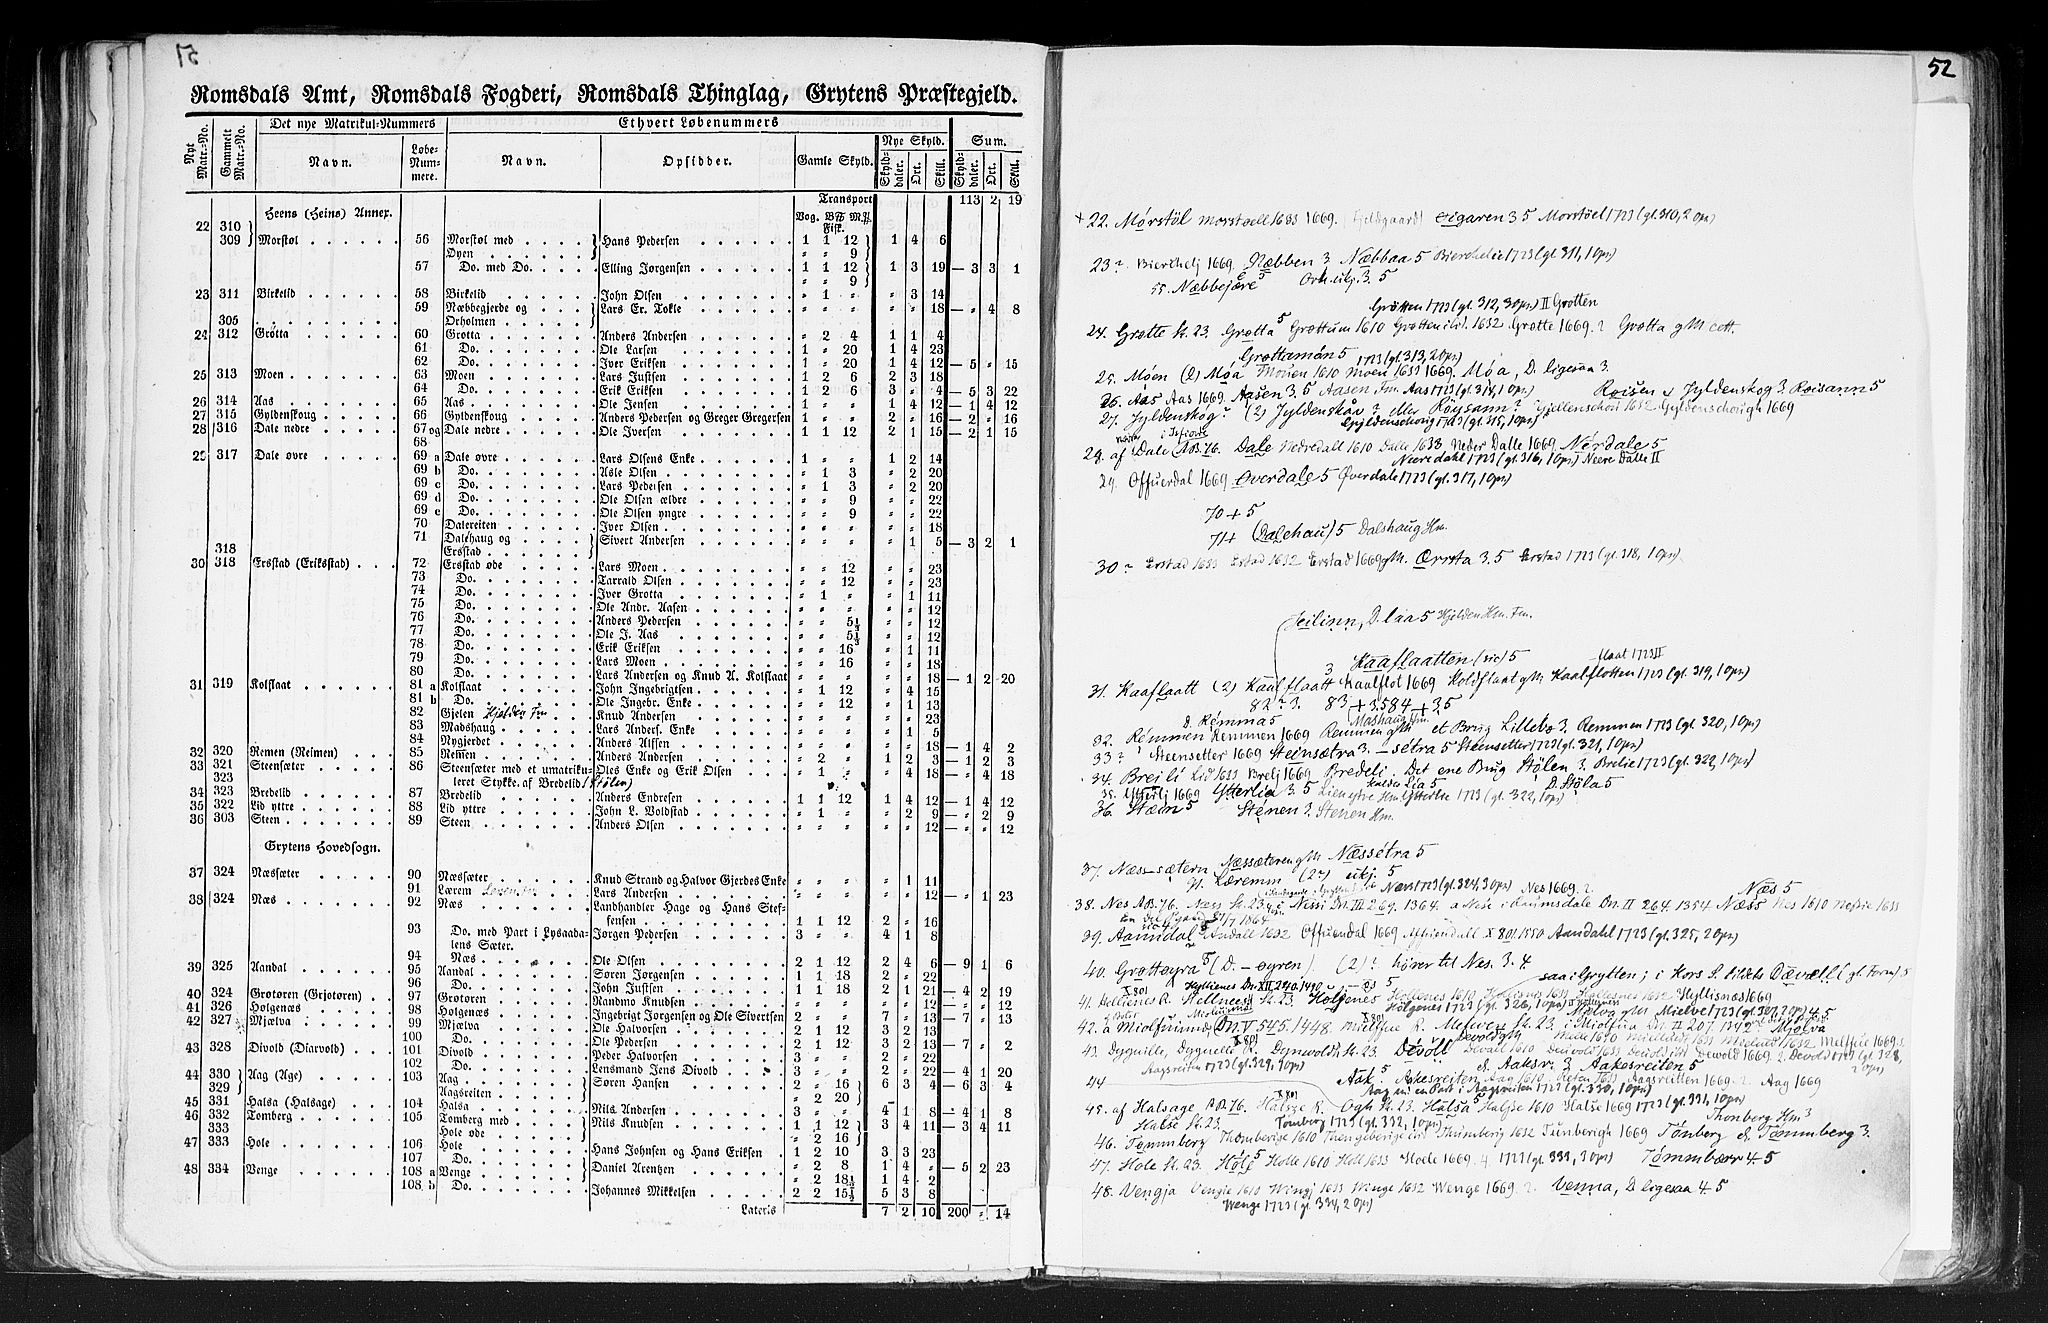 51
Romsdals Amt, Romsdals Fogderi, Romsdals Thinglag, Grytens Præstegjeld.
Nyt Matr.-No. Gammelt Matr.-No. Det nye Matrikul-Nummers Ethvert Løbenummers Sum.
Navn. Løbe-Nummere. Navn. Opsidder. Gamle Skyld. Nye Skyld.
Skylddaler. Ort. Skill. Skylddaler. Ort. Skill.
Transport 113 2 19
Heens (Heins) Annex. Vog. Fisk.
22 310
309 Morstøl 56 Morstøl med Hans Pedersen 1 1 12 1 4 6
Øyen " " 9
57 Do. med Do. Elling Jørgensen 1 1 12 1 3 19 — 3 3 1
" " 9
23 311 Birkelid 58 Birkelid John Olsen " 1 " " 3 14
59 Næbbegjerde og Lars Er. Tokle " " " " " 18 — " 4 8
305 Orholmen
24 312 Grøtta 60 Grotta Anders Andersen " 2 4 1 1 4
61 Do. Ole Larsen 1 " 20 1 4 23
62 Do. Iver Eriksen 1 " 20 1 4 12 — 5 " 15
25 313 Moen 63 Moen Lars Justsen 1 2 6 2 3 18
64 Do. Erik Eriksen 1 2 6 3 " 4 — 5 3 22
26 314 Aas 65 Aas Ole Jensen 1 " " 1 4 12 — 1 4 12
27 315 Gyldenskoug 66 Gyldenskoug Anders Pedersen og Greger Gregersen 1 " " 2 " 16 — 2 " 16
28 316 Dale nedre 67 og Dale nedre Ole Iversen 1 1 12 2 1 15 — 2 1 15
68
29 317 Dale øvre 69 a Dale øvre Lars Olsens Enke 1 " " 1 2 14
69 b Do. Asle Olsen " 1 3 " 2 20
69 c Do. Lars Pedersen " 1 3 " 2 20
69 d Do. Ole Olsen ældre " " 9 " " 22
69 e Do. Ole Olsen yngre " " 9 " " 22
70 Datereiten Iver Olsen " " " " " 18
71 Dalehaug og Sivert Andersen " " " " 1 5 — 3 2 1
318 Ersstad
30 318 Ersstad (Eriksstad) 72 Ersstad øde Lars Moen " " 12 " " 23
73 Do. Tarrald Olsen " " 12 " " 23
74 Do. Iver Grotta " 1 " " 1 11
75 Do. Ole Andr. Aasen " " " " " 12
76 Do. Anders Pedersen " " 5⅓ " " 12
77 Do. Ole J. Aas " " 5⅓ " " 12
78 Do. Erik Eriksen " " 16 " 1 11
79 Do. Lars Moen " " 16 " " 18
80 Do. Lars Andersen og Knud A. Kolflaat " " " " " 18 — 1 2 20
31 319 Kolflaat 81 a Kolflaat John Ingebrigtsen " 1 12 " 4 15
81 b Do. Ole Ingebr. Enke " " 12 " 1 13
82 Gjelen Hjelden Fm Knud Andersen " " " " " 23
83 Madshaug Lars Anders. Enke " " " " 1 5
84 Nygjerdet Anders Alfsen " " " " " 18 — 1 4 2
32 320 Remen (Reimen) 85 Remen Anders Andersen " 2 " 1 2 3 — 1 2 3
33 321 Steensæter 86 Steensæter med et umatriku- Oles Enke og Erik Olsen " 1 " " 4 18 — " 4 18
323 leret Stykke af Bredelid (Stølen)
34 323 Bredelid 87 Bredelid Anders Endresen 1 1 12 1 4 12 — 1 4 12
35 322 Lid yttre 88 Lid yttre John L. Voldstad " 1 " " 2 9 — " 2 9
36 303 Steen 89 Steen Anders Olsen " " " " " 12 — " " 12
Grytens Hovedsogn.
37 324 Næssæter 90 Næssæter Knud Strand og Halvor Gjerdes Enke " " " " 1 11
91 Lærem Lars Andersen " " " " " 12 — " 1 23
38 324 Næs 92 Næs Landhandler Hage og Hans Stef-
fensen 1 1 12 2 " 16
93 Do. med Part i Lysaada- Jørgen Pedersen 3 " " 4 1 8
lens Sæter.
94 Næs Ole Olsen 2 1 12 2 4 6 — 9 1 6
39 325 Aandal 95 Aandal Søren Jørgensen 1 1 18 2 " 22
96 Do. John Justsen 1 1 18 2 1 21 — 4 2 19
40 324 Grotøren (Grjotøren) 97 Grotøren Randmo Knudsen " " " " " 12 — " " 12
41 326 Holgenæs 98 Holgenæs Ingebrigt Jorgensen og Ole Sivertsen 2 " " 7 " 13 — 7 " 13
42 327 Mjælva 99 Mjælva Ole Halvorsen 2 1 12 3 2 13
100 Do. Ole Pedersen 2 1 12 3 2 13 — 7 " 2
43 328 Divold (Diarvold) 101 Divold Peder Halvorsen 2 " " 2 " 22
102 Do. Lensmand Jens Divold 2 " " 2 " 22 — 4 1 20
44 330 Aag (Age) 103 Aag Søren Hansen 2 " 16 6 3 4 — 6 3 4
329 Aagsreiten " 2 20
45 331 Halsa (Halsage) 104 Halsa Nils Andersen 3 " " 4 1 8 — 4 1 8
46 332 Tomberg 105 Tomberg med Nils Knudsen 1 1 12 3 4 11 — 3 4 11
333 Hole øde " 2 16
47 333 Hole 106 Hole Hans Johnsen og Hans Eriksen 1 2 10 3 3 23
107 Do. Daniel Arentzen " 2 8 1 4 " — 5 2 23
48 334 Venge 108 a Venge " 2 18½ 1 4 2
108 b Do. Johannes Mikkelsen 2 2 15½ 5 3 8
Lateris 7 2 10 200 " 14
52
+ 22. Mórstöl morstoell 1633 1669. (Gjeldegaard) øigaren 3 5 Morstøel 1723 (gl. 310, 2 opss)
23? Bierthelj 1669. Næbben 3 Næbbaa 5 Bierchelie 1723 (gl. 311, 1 ops)
55. Næbbejære 5 Orh. ukj. 3. 5
Grøtten 1723 (gl. 312, 3 ops) II Grotten
24. Grøtte St. 23. Grøtta 5 Grøttum 1610 Grotten 1632 Grøtte 1669. 2 Grøtta gM cett.
Grøttamón 5 1723 (gl. 313, 2 ops)
25. Móen (2) Móa Monen 1610 moen 1633 1669. Móa, D. ligesaa 3.
26. Aas Aas 1669. Aasen 3. 5 Aasen Fm. Aas 1723 (gl. 314, 1 ops) Roisen & Jyldenskog 3. Roisann 5
27. Jyldenskog? (2) Jyldenskåv 3 eller Röysann? Gjellenschou 1632 Gyldenschough 1669
Gyldenschoug 1723 (gl. 315, 1 ops)
28. af Dale AB. 76. Dale Nedredall 1610 Dalle 1633. Neder Dalle 1669. Nérdale 5
Neere dahl 1723 (gl. 316, 1 ops) Neere Dalle II
29. Offuerdal 1669 Overdale 5 Øverdale 1723 (gl. 317, 1 ops)
70 + 5
71+ (Dalehau) 5 Dalshaug Hm.
30? Erstad 1633 Estad 1632 Erstad 1669 gM. Ørsta 3. 5 Erstad 1723 (gl. 318, 1 ops)
Jeilinn, D. laa 5 Hjelden Hm. Fm.
Kaaflaatten (sic) 5 flaat 1723 II
31. Kaaflaatt (2) Kaulflaatt 3 Kaalflot 1669 Koldflaat gM. Kaalflotten 1723 (gl. 319, 1 ops)
82? 3. 83 + 3. 5 84 + 3. 5
D. Rémma 5 Mashaug Hm.
32. Rémmen Remmen 1669 Remmen gM et Brug Lillebo 3. Remmen 1723 (gl. 320, 1 ops)
33? Steensetter 1669 Steinsætra 3. — sétra 5 Steensetter 1723 (gl. 321, 1 ops)
34. Brei li Lid 1633 Brelj 1669 Bredeli. Det ene Brug Stölen 3. Brelie 1723 (gl. 322, 1 ops)
35. Utterlj 1669 Ytterlia 3. 5 Lien ytre Hm. Ytterlie 1723 (gl. 322, 1 ops) D. Støla 5
36. Stæin 5 Sténen 3. Stenen Hm.
37. Næss-sætern Næssæteren gM Næssétra 5
91. Læremm (2?) ukj. 5
Næss 1723 (gl. 324, 3 ops) Nes 1669. 2. Næs 5
38. Nes AB. 76. Næss St. 23. i Nessi Dn. III 269. 1364. a Nese i Raumsdale Dn. II 264. 1354 Næss Nes 1610 Nessie 1633
39. Aamdal 5 Andall 1632 Offuendal 1669 X 801 1550 Aandahl 1723 (gl. 325, 2 ops)
40. Grøttøyra 5 (D. - øyren) (2)? hører til Nes. 3. 4
saa i Grytten; i Kors S. Dævell (gl. Form) 5
Hyllienes Dn. XII 240. 1490
41. Hellienes R. Hellnees St. 23 Holgenes Hollenes 1610 Hyllisnæs 1669
Holgenes 1723 (gl. 326, 1 ops)
42. a Miolfuumd Dn. V 545. 1448. Mielfue R. Melwe St. 23. i Miolfua Dn. II 207. 1342 Mjølva
Mielve 1723 (gl. 307, 2 ops) 4. 5
43. Dyguille, Dyguelle R. Dynwoldt St. 23. Dévöll Devall 1610 Deuold 1633 Dewold 1669. 2. Devold 1723 (gl. 328, 2 ops)
Aagsreiten 1723 (gl. 329, 1 ops) d. Aaksr. 3 Aakesreiten 5
44 Aak 5 Aakesreiten Aag 1610 Reten 1633 Aagsreitten 1669. 2. Aag 1669
1723 (gl. 330, 1 ops)
45. af Halsage AB. 76. Halsge R. Ogh St. 23. Halsa 5 Halse 1610 Halse 1669 1723 (gl. 331, 1 ops)
Halse St. 23. Tomberg 1723 (gl. 332, 1 ops) Thonberg Hm. 3
46. Tømmberg Thomberge 1610 Thengeberige Thumberg 1632 Tunberigh 1669 Tónberg d. Tømmberg 3.
47. Hole St. 23. Hóle 5 Holle 1610 Holl 1633 Hoele 1669. 4. 1723 (gl. 333, 3 ops) Tømmbærr 4. 5
48. Vengja Vengie 1610 Wingj 1633 Winge 1632 Wenge 1669. 2. Venna, D. ligesaa 4. 5
Wenge 1723 (gl. 334, 2 ops)